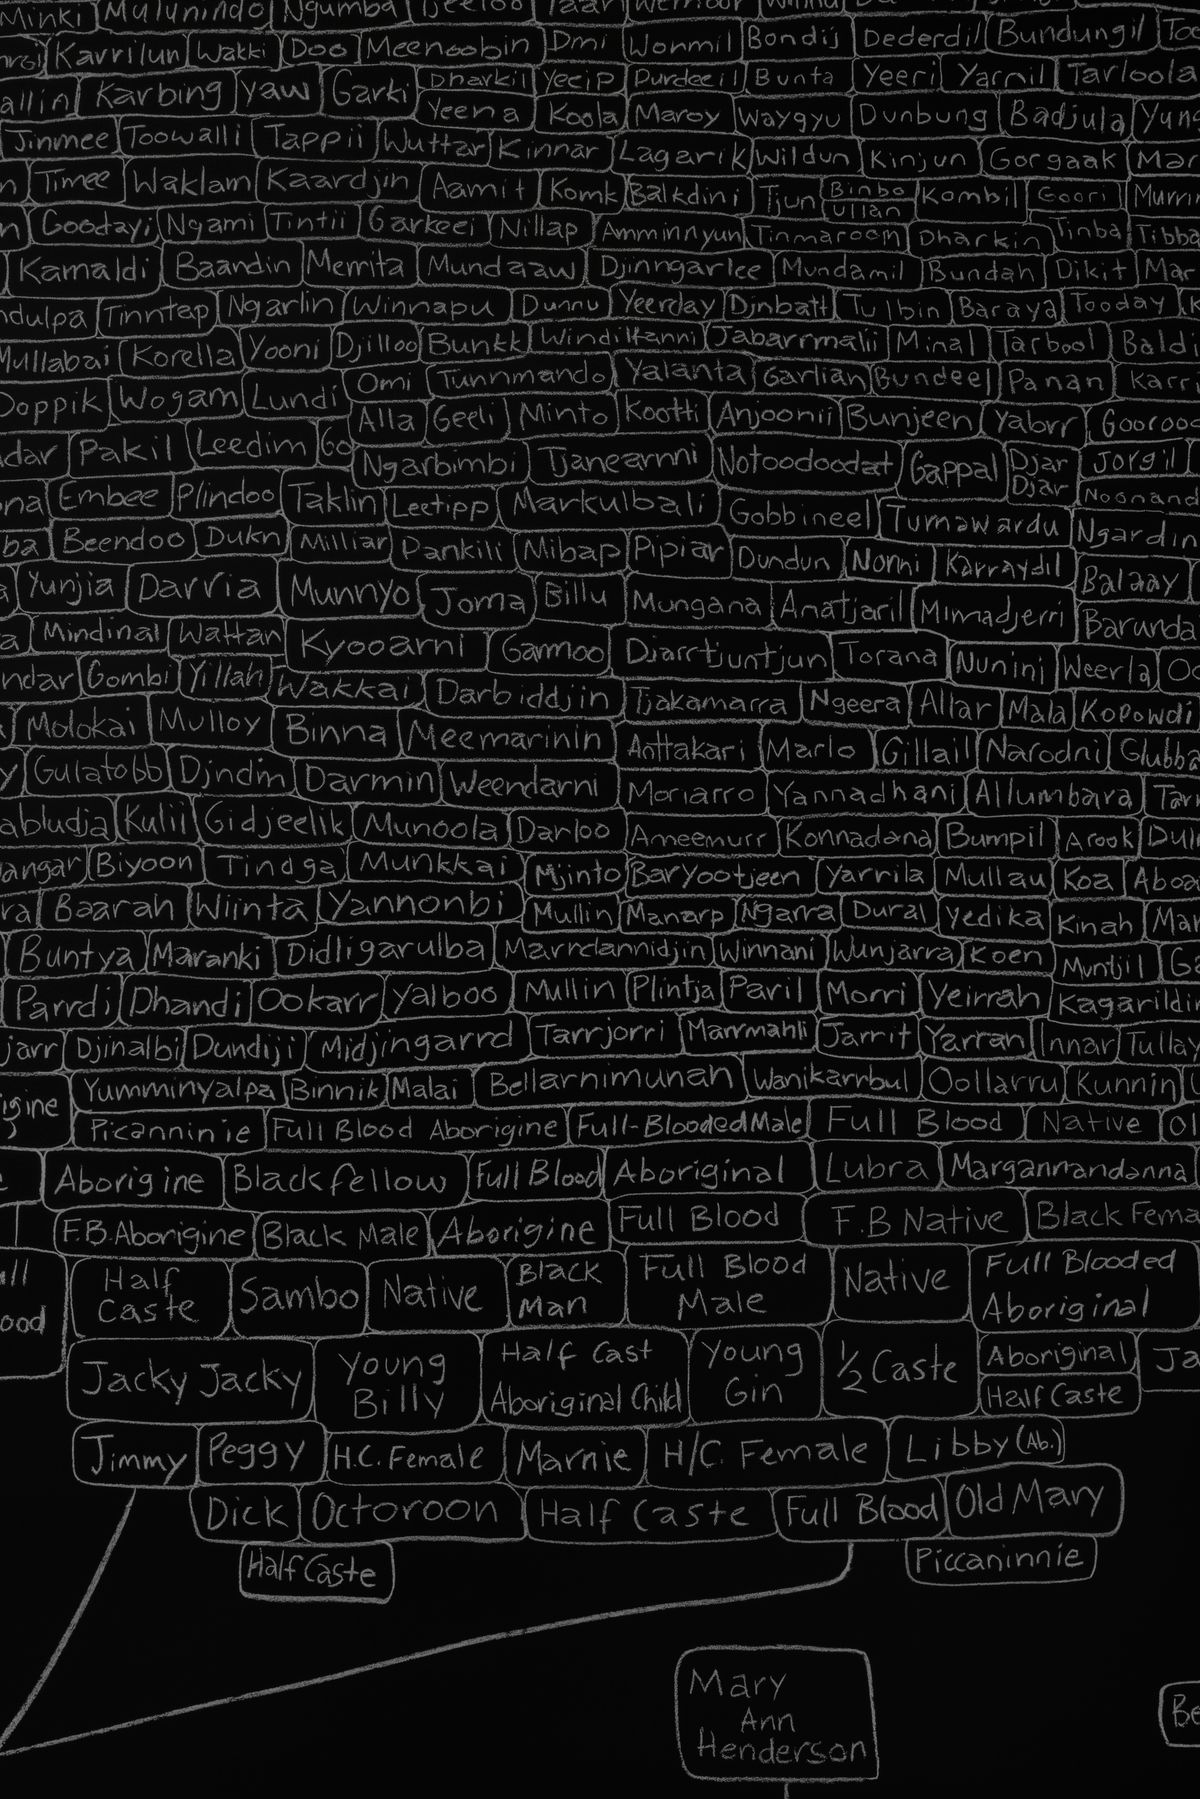 Minki Mulunindo Ngumba
Karrilun Wakki Doo Meenoobin Dmi Wonmil Bondij Dederdil Bundungil
Karbing Yaw Garki Dharkil Yeeip Purdeeil Bunta Yeeri Yarnil Tarloola
Yeena Koola Maroy Waygyu Dunbung Badjula
Jinmee Toowalli Tappii Wuttar Kinnar Lagarik Wildun Kinjun Gorgaak
Timee Waklam Kaardjin Aamit Komk Balkdini Tjun Binbo Ullan Kombil Goori
Goodayi Ngami Tintii Garkeei Nillap Amminnyun Tinmaroom Dharkin Tinba
Kamaldi Baandin Merrita Mundaaw Djinngarlee Mundamil Bundah Dikit
Tinntap Ngarlin Winnapu Dunnu Yeerday Djnbatl Tulbin Baraya Tooday
Mullabai Korella Yooni Djilloo Bunkk Windiltanni Jabarrmalii Minal Tarbool
Doppik Wogam Lundi Omi Tunnmando Yalanta Garlian Bundeel Panan
Alla Geeli Minto Kootti Anjoonii Bunjeen Yaborr
Pakil Leedim Ngarbimbi Tjanearnni Notoodoodat Gappal Djar Djar Jorgil
Embee Plindoo Taklin Leetipp Markulbali Gobbineel Turnawardu
Beendoo Dukn Milliar Pankili Mibap Pipiar Dundun Nonni Karraydil
Yunjia Darria Munnyo Joma Billu Mungana Anatjaril Mimadjerri Balaay
Mindinal Wattan Kyooarni Gamoo Djarrtjuntjun Torana Nunini Weerla
Gombi Yillah Wakkai Darbiddjin Tjakamarra Ngeera Allar Mala Kopowdi
Molokai Mulloy Binna Meemarinin Anttakari Marlo Gillail Narodni
Gulatobb Djndin Darmin Weendarni Moriarro Yannadhani Allumbara
Kulii Gidjeelik Munoola Darloo Ameemurr Konnadana Bumpil Arook
Biyoon Tindga Munkkai Mjinto Baryootjeen Yarrila Mullau Koa
Baarah Wiinta Yannonbi Mullin Manarp Ngarra Dural Yedika Kinah
Buntya Maranki Didligarulba Marrdannidjin Winnani Wunjarra Koen Muntjil
Parrdi Dhandi Ookarr Yalboo Mullin Plintja Paril Morri Yeirrah
Djinalbi Dundiji Midjingarrd Tarrjorri Marrmahli Jarrit Yarran Innar
Yumminyalpa Binnik Malai Bellarnimunah Wanikarrbul Oollarru Kunnin
Picanninie Full Blood Aborigine Full-Blooded Male Full Blood Native
Aborigine Blackfellow Full Blood Aboriginal Lubra Margannandanna
F.B. Aborigine Black Male Aborigine Full Blood F.B Native Black
Half Caste Sambo Native Black Man Full Blood Male Native Full Blooded Aboriginal
Jacky Jacky Young Billy Half Cast Aboriginal Child Young Gin ½ Caste Aboriginal Half Caste
Jimmy Peggy H.C. Female Marnie H/C. Female Libby (Ab.)
Dick Octoroon Half Caste Full Blood Old Mary
Half Caste Piccaninnie
Mary
Ann
Henderson